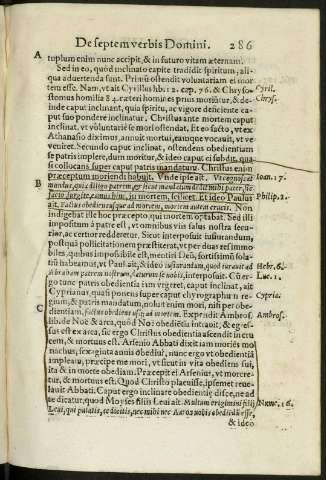 De septem verbis Domini. 286
A
tuplum enim nunc accipit, & in futuro vitam æternam.
Sed in eo, quòd inclinato capite tradidit spiritum, ali-
qua aduertenda sunt. Primũ ostendit voluntariam ei mor
tem esse. Nam, vt ait Cyrillus lib. 12. cap. 76. & Chryso-
Cyril.
stomus homilia 84. cæteri homines prius moriũtur, & de-
Chrys.
inde caput inclinant, quia spiritu, ac vigore deficiente ca-
put suo pondere inclinatur. Christus ante mortem caput
inclinat, vt voluntariè se mori ostendat. Et eo facto, vt ex
Athanasio diximus, annuit mortui, eamque vocauit, vt ve
veniret. Secundo caput inclinat, ostendens obedientiam
se patris implere, dum moritur, & ideo caput ei subdit, qua
si collocans super caput patris mandatum. Christus enim
præceptum moriendi habuit. Vnde ipse ait.
Ioan. 17.
B
mandus, quia diligo patrem, & sicut mandatum dedit mihi pater, sic
facio, surgite, eamus hinc, in mortem, scilicet. Et ideo Paulus
Philip. 2.
ait, Factus obediens usque ad mortem, mortem autem crucis. Non
indigebat ille hoc præcepto, qui mortem optabat. Sed illi
impositum à patre est, vt omnibus vijs salus nostra secu-
rior, ac certior redderetur. Sicut interposuit iusiurandum,
postquã pollicitationem præstiterat, vt per duas res immo
biles, quibus impossibile est, mentiri Deũ, fortissimũ sola-
tiũ habeamus, vt Paul. ait, & ideo iusiurandum, quod iurauit ad
Hebr. 6.
Abraham patrem nostrum, daturum se nobis, interposuit. Cũ er-
Luc. 1.
go tunc caput obedientia iam vrgeret, caput inclinat, ait
Cyprianus, quasi ponens super caput chyrographũ n re-
Cypria.
gium, & patris mandatum, noluit enim mori, nisi per obe-
C
dientiam, factus obediens usque ad mortem. Expendit Ambros.
Ambros.
lib. de Noë & arca, quòd Noë obedientia intrauit, & egres-
sus est ex arca, sic ergo Christus obedientia ascendit in cru
cem, & mortuus est. Arsenio Abbati dixit iam moriẽs mo
nachus, sexaginta annis obediui, nunc ergo vt obedientiã
impleam, præcipe me mori, vt sicut in vita obediens sui,
ita & in morte obediam. Præcepit ei Arsenius, vt morere-
tur, & mortuus est. Quod Christo placuisse, ipsemet reue-
lauit Abbati. Caput ergo inclinare obedientię disce, ne ad
te dicatur, quod Moyses filijs Leui ait. Multum erigimini filij
Num. 16.
Leui,
& ideo